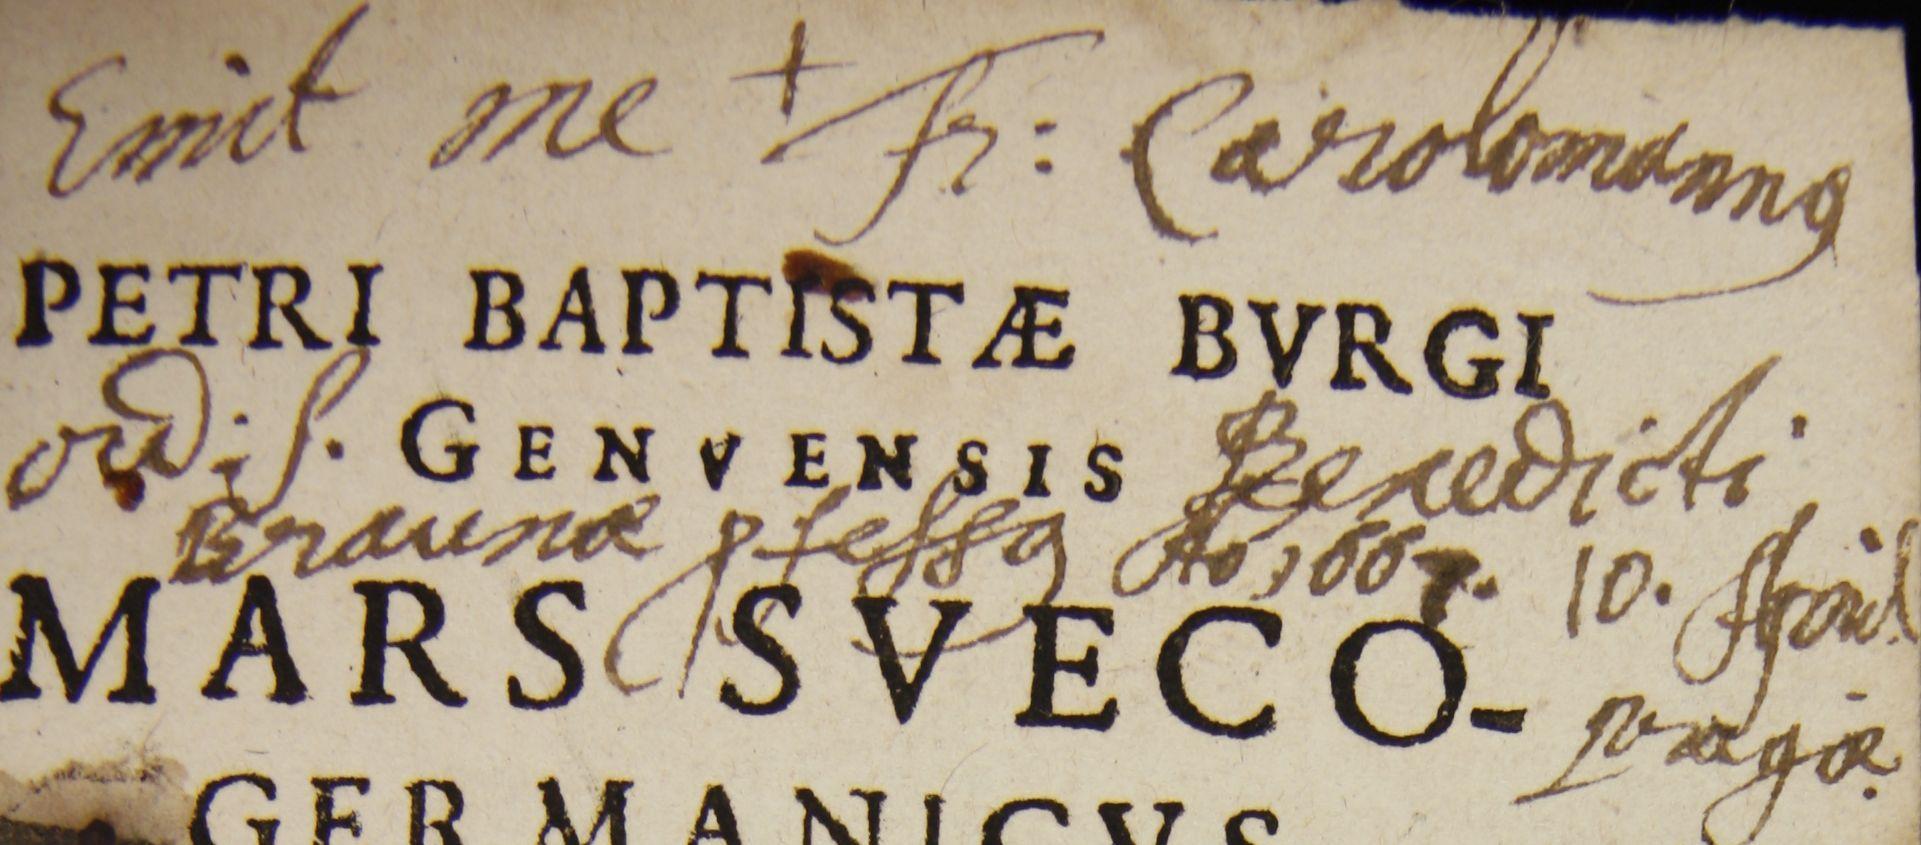 Emit me + Fr: Carolomannꝰ
PETRI BAPTISTÆ BVRGI
ord: S. GENVENSIS Benedicti
Braunæ ꝓfessꝰ Ao 1667. 10. April
MARS SVECO-
pragæ.
GERMANICVS